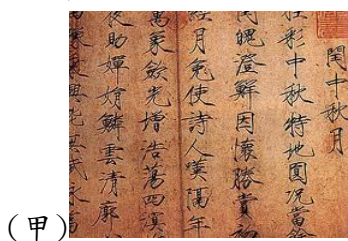 閏中秋月
桂彩中秋特地圓況當餘
閏魄澄鮮因懷勝賞初
經月免使詩人嘆隔年
萬象斂光增浩蕩四溟
夜助嬋娟鱗雲清廓
(甲)